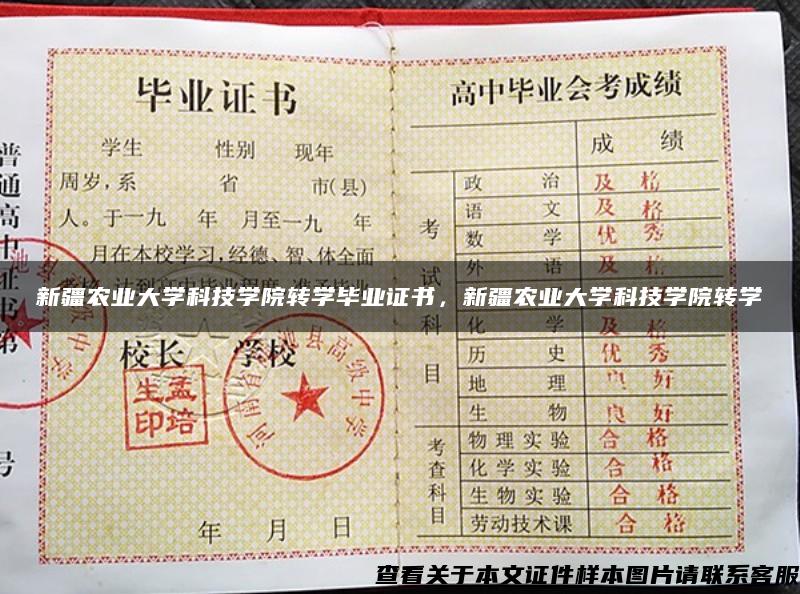 毕业证书
学生 性别 现年
周岁,系 省 市(县)
人。于一九 年 月至一九 年
月在本校学习,经德、智、体全面
校长 学校
孟培生印
河南省 池县高级中学
年 月 日
高中毕业会考成绩
成 绩
考试科目
政 治 及 格
语 文 及 格
数 学 优 秀
外 语 及 格
化 学 及 格
历 史 优 秀
地 理 良 好
生 物 良 好
考查科目
物理实验 合 格
化学实验 合 格
生物实验 合 格
劳动技术课 合 格
普通高中证书第
号
新疆农业大学科技学院转学毕业证书，新疆农业大学科技学院转学
查看关于本文证件样本图片请联系客服